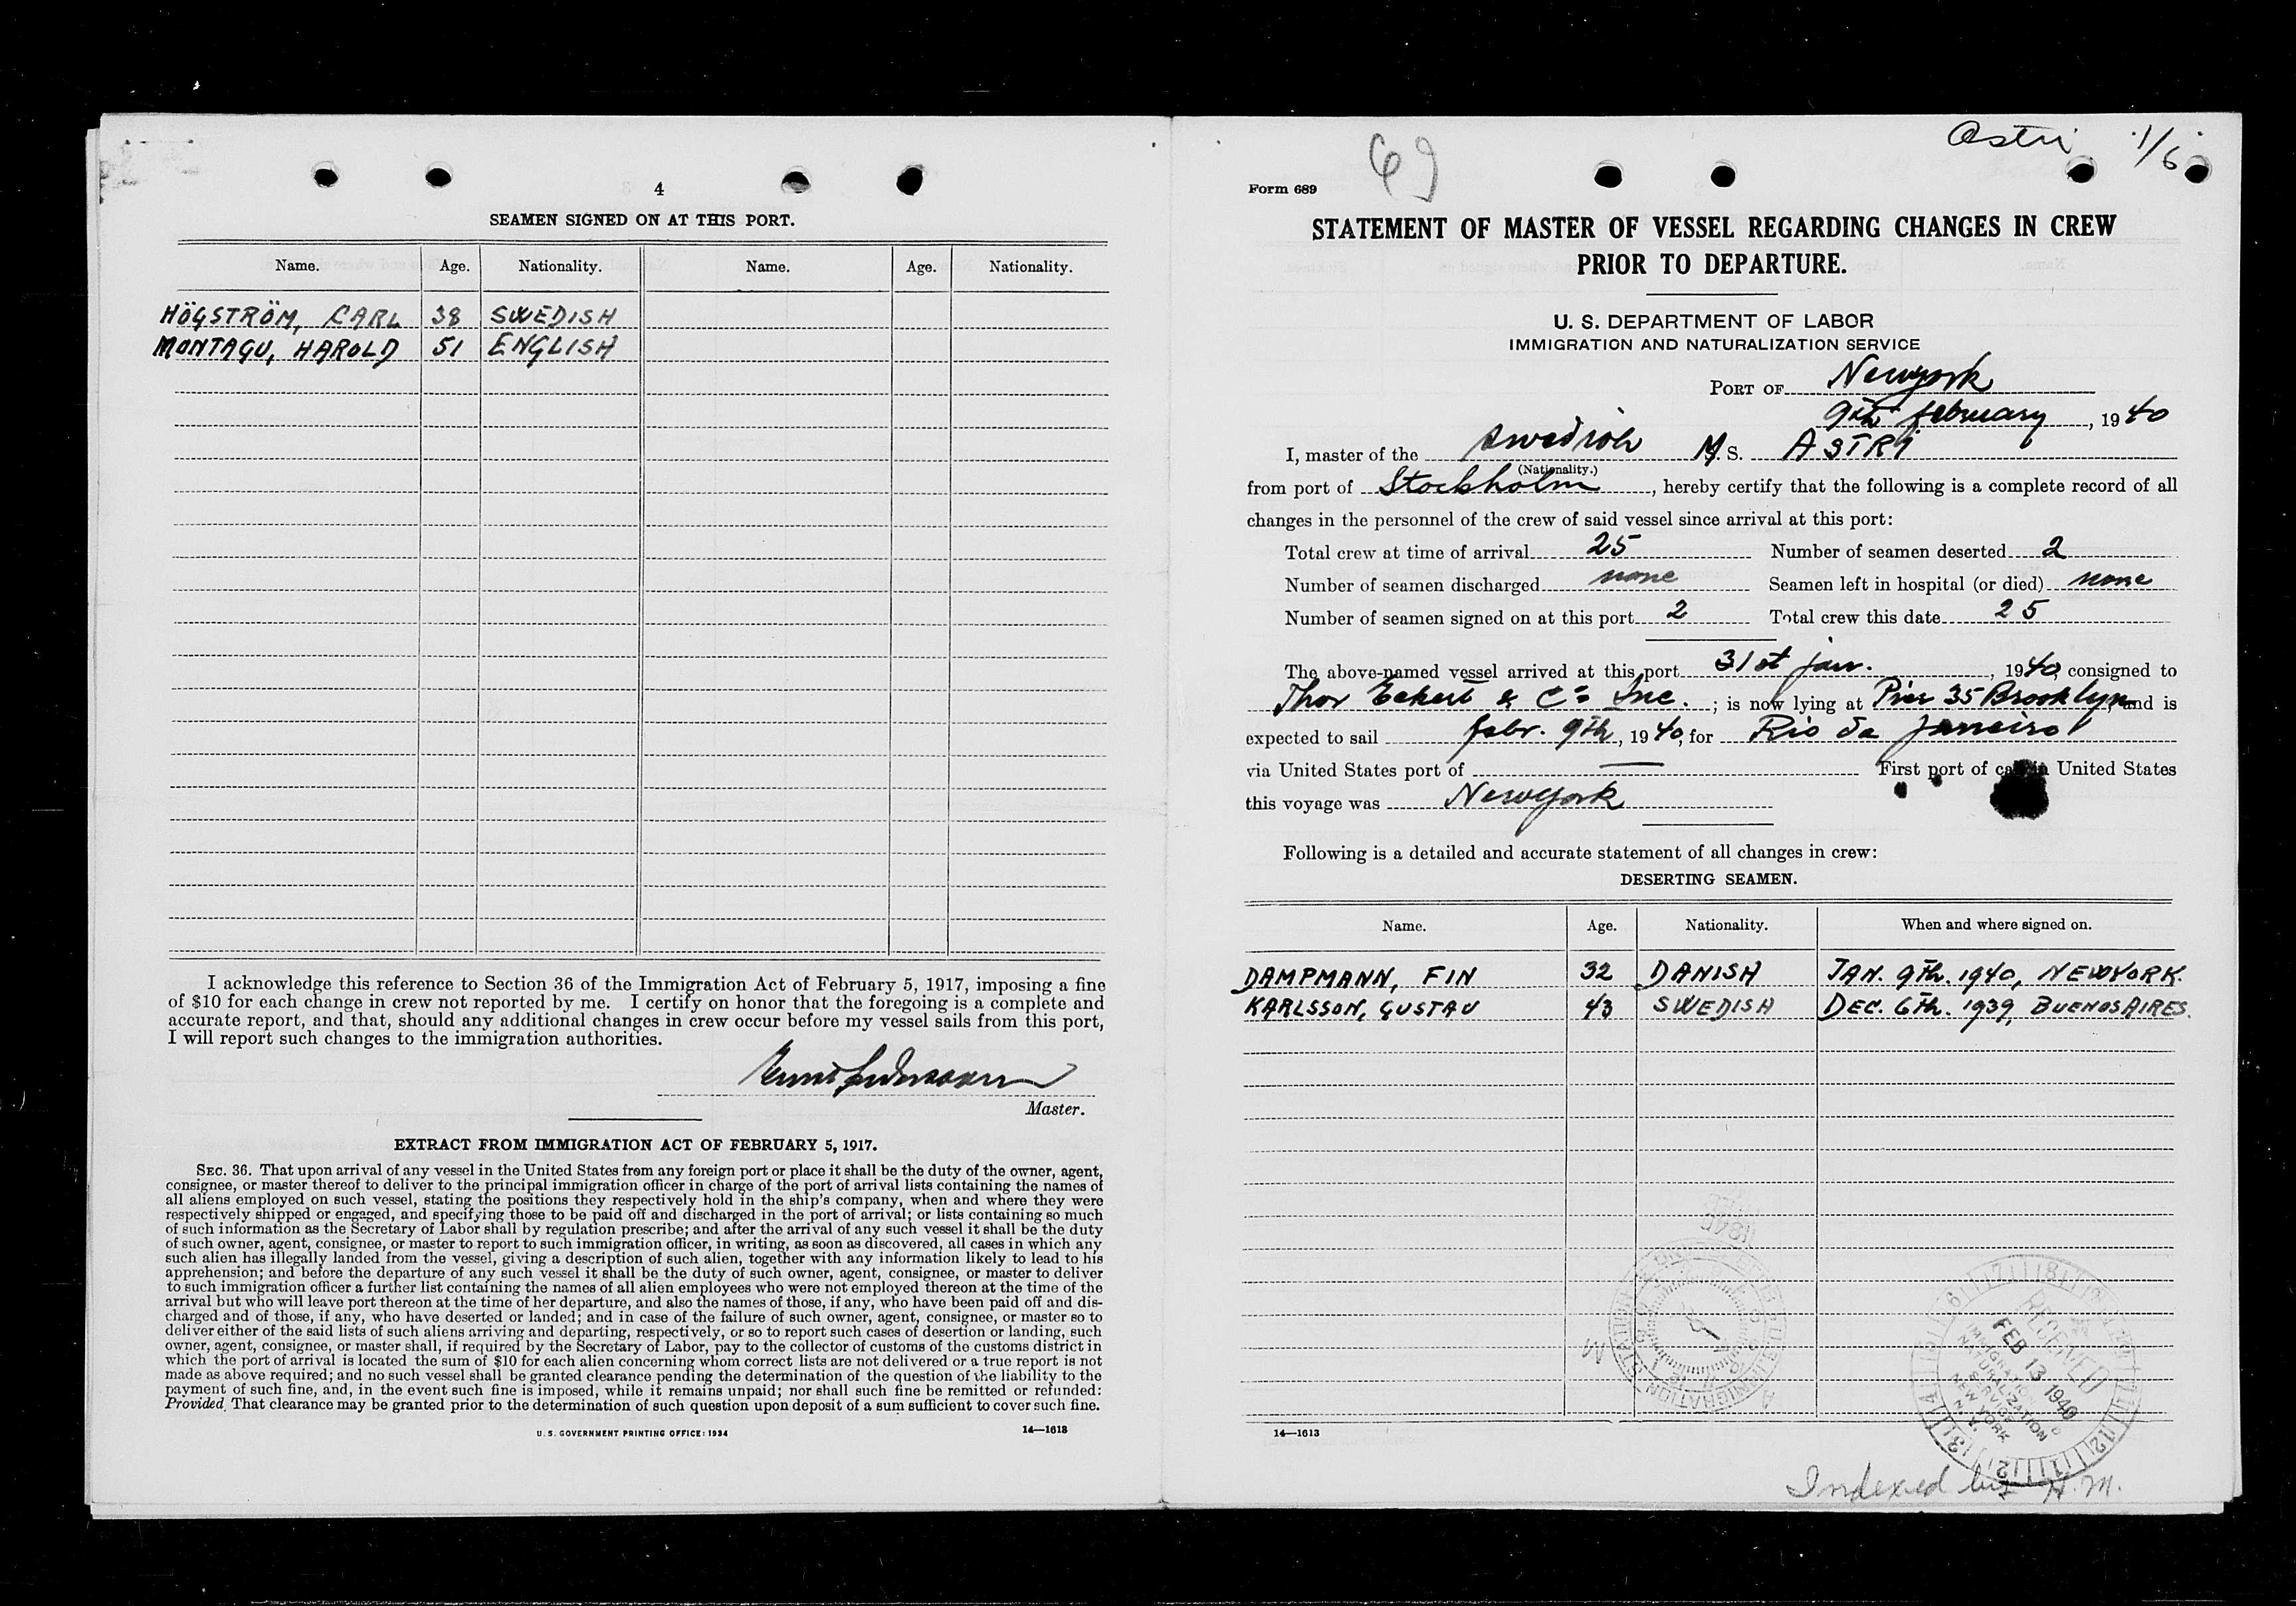 4
SEAMEN SIGNED ON AT THIS PORT.
Name. Age. Nationality. Name. Age. Nationality.
HÖGSTRÖM, CARL 38 SWEDISH
MONTAGU, HAROLD 51 ENGLISH
I acknowledge this reference to Section 36 of the Immigration Act of February 5, 1917, imposing a fine
of $10 for each change in crew not reported by me. I certify on honor that the foregoing is a complete and
accurate report, and that, should any additional changes in crew occur before my vessel sails from this port,
I will report such changes to the immigration authorities.
Master.
EXTRACT FROM IMMIGRATION ACT OF FEBRUARY 5, 1917.
SEC. 36. That upon arrival of any vessel in the United States from any foreign port or place it shall be the duty of the owner, agent,
consignee, or master thereof to deliver to the principal immigration officer in charge of the port of arrival lists containing the names of
all aliens employed on such vessel, stating the positions they respectively hold in the ship's company, when and where they were
respectively shipped or engaged, and specifying those to be paid off and discharged in the port of arrival; or lists containing so much
of such information as the Secretary of Labor shall by regulation prescribe; and after the arrival of any such vessel it shall be the duty
of such owner, agent, consignee, or master to report to such immigration officer, in writing, as soon as discovered, all cases in which any
such alien has illegally landed from the vessel, giving a description of such alien, together with any information likely to lead to his
apprehension; and before the departure of any such vessel it shall be the duty of such owner, agent, consignee, or master to deliver
to such immigration officer a further list containing the names of all alien employees who were not employed thereon at the time of the
arrival but who will leave port thereon at the time of her departure, and also the names of those, if any, who have been paid off and dis-
charged and of those, if any, who have deserted or landed; and in case of the failure of such owner, agent, consignee, or master so to
deliver either of the said lists of such aliens arriving and departing, respectively, or so to report such cases of desertion or landing, such
owner, agent, consignee, or master shall, if required by the Secretary of Labor, pay to the collector of customs of the customs district in
which the port of arrival is located the sum of $10 for each alien concerning whom correct lists are not delivered or a true report is not
made as above required; and no such vessel shall be granted clearance pending the determination of the question of the liability to the
payment of such fine, and, in the event such fine is imposed, while it remains unpaid; nor shall such fine be remitted or refunded:
Provided, That clearance may be granted prior to the determination of such question upon deposit of a sum sufficient to cover such fine.
U. S. GOVERNMENT PRINTING OFFICE: 1934 14—1613
Astri 1/6
69
Form 689
STATEMENT OF MASTER OF VESSEL REGARDING CHANGES IN CREW
PRIOR TO DEPARTURE.
U. S. DEPARTMENT OF LABOR
IMMIGRATION AND NATURALIZATION SERVICE
PORT OF Newyork
9th february, 1940
I, master of the Swedish M. S. ASTRI
(Nationality.)
from port of Stockholm, hereby certify that the following is a complete record of all
changes in the personnel of the crew of said vessel since arrival at this port:
Total crew at time of arrival 25 Number of seamen deserted 2
Number of seamen discharged none Seamen left in hospital (or died) none
Number of seamen signed on at this port 2 Total crew this date 25
The above-named vessel arrived at this port 31st jan., 1940, consigned to
Thor Eckert & Co Inc.; is now lying at Pier 35 Brooklyn, and is
expected to sail febr. 9th, 1940, for Rio de Janeiro
via United States port of — First port of call in United States
this voyage was Newyork
Following is a detailed and accurate statement of all changes in crew:
DESERTING SEAMEN.
Name. Age. Nationality. When and where signed on.
DAMPMANN, FIN 32 DANISH JAN. 9th. 1940, NEWYORK.
KARLSSON, GUSTAV 43 SWEDISH DEC. 6th. 1939, BUENOS AIRES.
RECEIVED
FEB 13 1940
IMMIGRATION &
NATURALIZATION
SERVICE
NEW YORK
N. Y.
14—1613
Indexed by H. M.